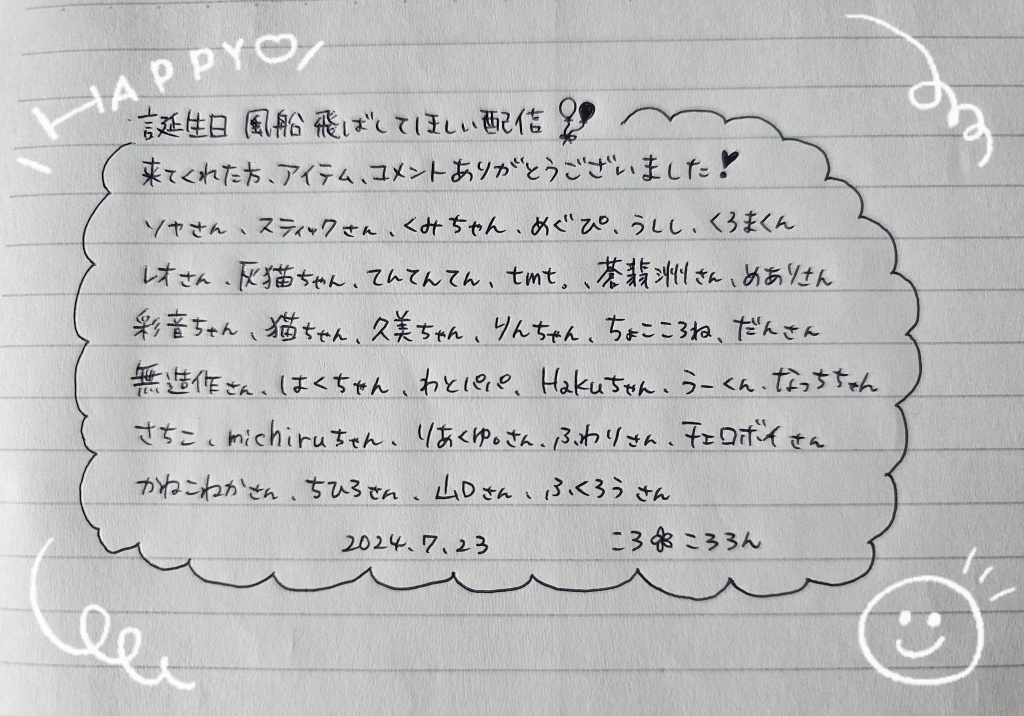 HAPPY
誕生日 風船 飛ばしてほしい配信
来てくれた方、アイテム、コメントありがとうございました!
ソヤさん、スティックさん、くみちゃん、めぐぴ、うしし、くろまくん
レオさん、灰猫ちゃん、てんてんてん、tmt。、蒼翡洲さん、めありさん
彩音ちゃん、猫ちゃん、久美ちゃん、りんちゃん、ちょこころね、だんさん
無造作さん、はくちゃん、わとパパ、Hakuちゃん、うーくん、なっちちゃん
さちこ、michiruちゃん、りあくゆ。さん、ふわりさん、チェロボイさん
かねこねかさん、ちひろさん、山口さん、ふくろうさん
2024.7.23 ころ❀ころろん